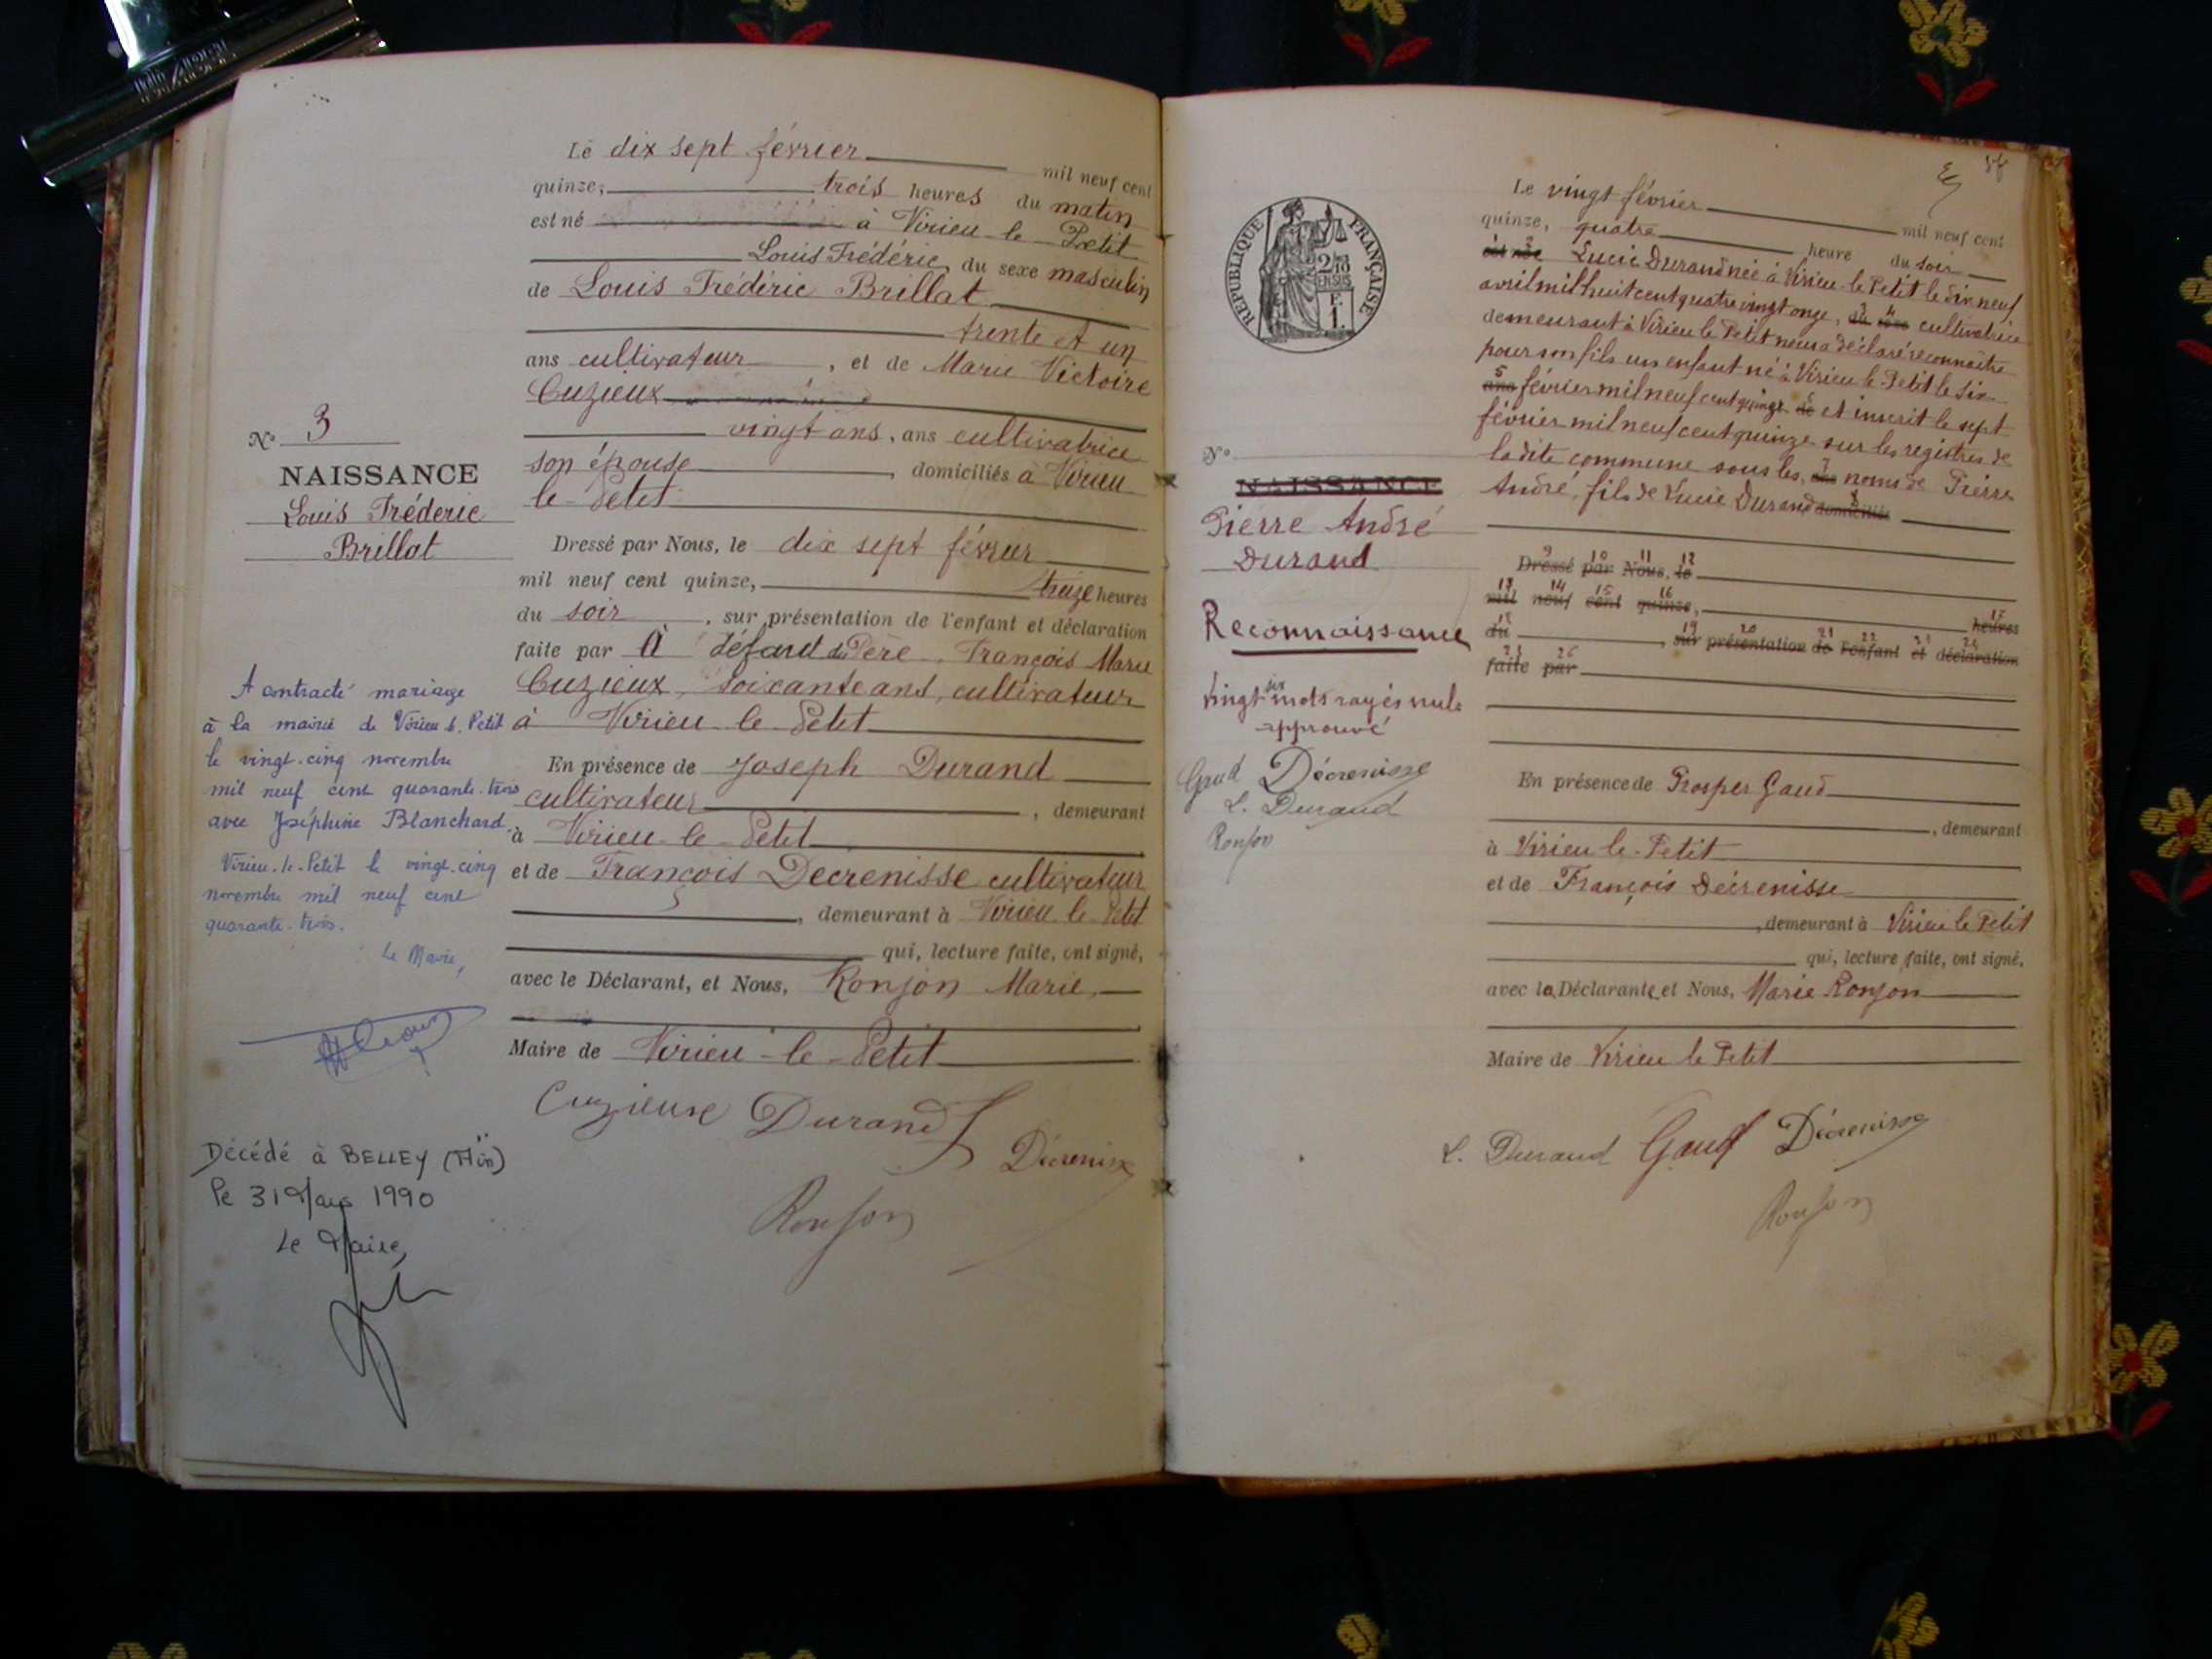 Le dix sept février mil neuf cent
quinze, trois heures du matin
est né à Virieu le Petit
Louis Frédéric, du sexe masculin
de Louis Frédéric Brillat
trente et un
ans cultivateur, et de Marie Victoire
Cuzieux
vingt ans, ans cultivatrice
son épouse, domiciliés à Virieu
le Petit
N° 3
NAISSANCE
Louis Fréderic
Brillat
Dressé par Nous, le dix sept février
mil neuf cent quinze, treize heures
du soir, sur présentation de l'enfant et déclaration
faite par A défaut du Père, François Marie
Cuzieux, soixante ans, cultivateur
à Virieu le Petit
En présence de Joseph Durand
cultivateur, demeurant
à Virieu le Petit
et de François Decrenisse cultivateur
, demeurant à Virieu le Petit
qui, lecture faite, ont signé,
avec le Déclarant, et Nous, Ronjon Marie,
Maire de Virieu-le-Petit
Cuzieux Durand
Décrenisse
Ronjon
A contracté mariage
à la mairie de Virieu-le-Petit
le vingt-cinq novembre
mil neuf cent quarante-trois
avec Joséphine Blanchard.
Virieu-le-Petit le vingt-cinq
novembre mil neuf cent
quarante-trois.
Le Maire,
Décédé à BELLEY (Ain)
le 31 Mars 1990
Le Maire,
RÉPUBLIQUE FRANÇAISE
Le vingt février mil neuf cent
quinze, quatre heure du soir
est née Lucie Durand née à Virieu-le-Petit le dix neuf
avril mil huit cent quatre vingt onze, du sexe cultivatrice
demeurant à Virieu le Petit nous a déclaré reconnaitre
pour son fils un enfant né à Virieu le Petit le six
ans février mil neuf cent quinze de et inscrit le sept
février mil neuf cent quinze sur les registres de
la dite commune sous les ans noms de Pierre
André, fils de Lucie Durand domiciliés
N°
NAISSANCE
Pierre André
Durand
Reconnaissance
Vingt six mots rayés nuls
approuvé
Gaud Décrenisse
L. Durand
Ronjon
Dressé par Nous, le
mil neuf cent quinze, heures
du, sur présentation de l'enfant et déclaration
faite par
En présence de Prosper Gaud
, demeurant
à Virieu le-Petit
et de François Décrenisse
, demeurant à Virieu le Petit
qui, lecture faite, ont signé,
avec la Déclarante, et Nous, Marie Ronjon
Maire de Virieu le Petit
L. Durand Gaud Décrenisse
Ronjon